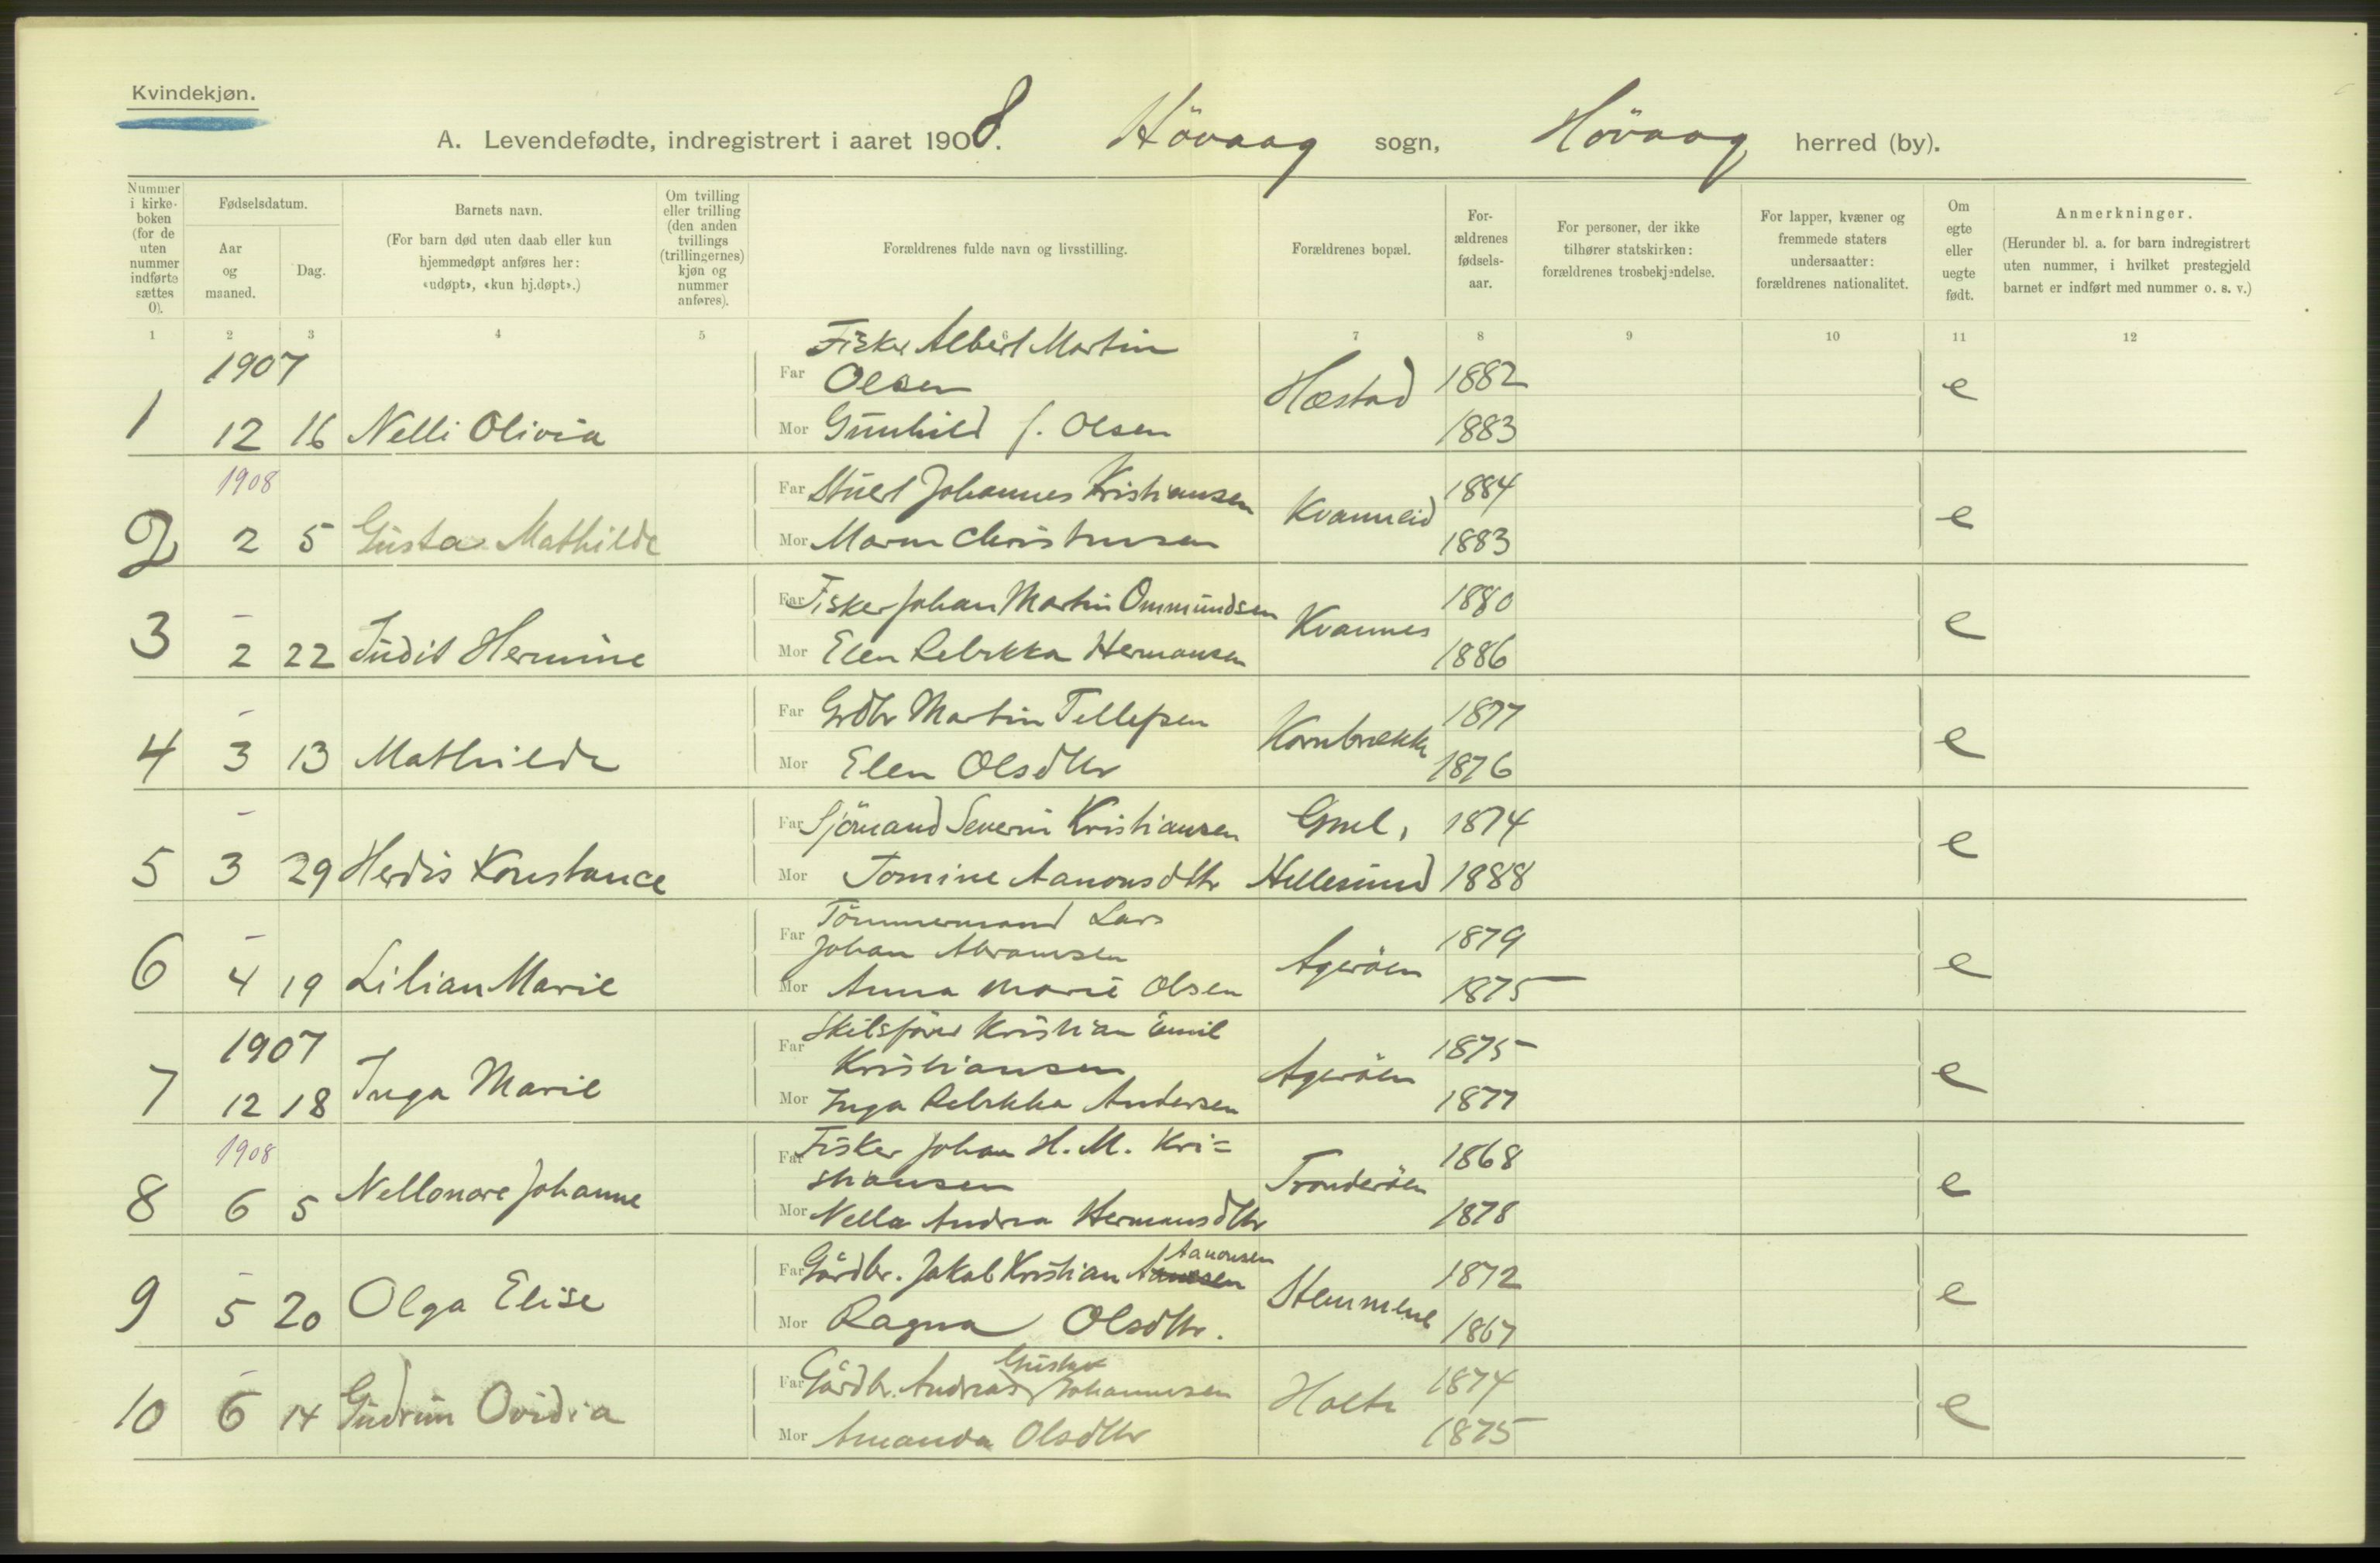 Kvindekjøn.
A. Levendefødte, indregistrert i aaret 1908. Hövaag sogn, Hövaag herred (by).
Nummer i kirkeboken (for de uten nummer indførte sættes 0).
Fødselsdatum.
Aar og maaned.
Dag.
Barnets navn.
(For barn død uten daab eller kun hjemmedøpt anføres her: «udøpt», «kun hj.døpt».)
Om tvilling eller trilling (den anden tvillings (trillingernes) kjøn og nummer anføres).
Forældrenes fulde navn og livsstilling.
Forældrenes bopæl.
For-ældrenes fødsels-aar.
For personer, der ikke tilhører statskirken: forældrenes trosbekjendelse.
For lapper, kvæner og fremmede staters undersaatter: forældrenes nationalitet.
Om egte eller uegte født.
Anmerkninger.
(Herunder bl. a. for barn indregistrert uten nummer, i hvilket prestegjeld barnet er indført med nummer o. s. v.)
1 2 3 4 5 6 7 8 9 10 11 12
1907
Fisker Albert Martin
Far Olsen Hæstad 1882 e
1 12 16 Nelli Olivia Mor Gunhild f. Olsen 1883
1908
Far Stuert Johannes Kristiansen Kvanneid 1884 e
2 2 5 Gusta Mathilde Mor Maren Christensen 1883
- Far Fisker Johan Martin Ommundsen Kvannes 1880 e
3 2 22 Judit Hermine Mor Elen Rebekka Hermansen 1886
- Far Grdbr Martin Tellefsen Kornbrekke 1877 e
4 3 13 Mathilde Mor Elen Olsdtr 1876
- Far Sjömand Severin Kristiansen Gml. 1874 e
5 3 29 Herdis Konstance Mor Tomine Aanonsdtr Hellesund 1888
- Tömmermand Lars
Far Johan Abramsen Ageröen 1879 e
6 4 19 Lilian Marie Mor Anna Marie Olsen 1875
1907
Skibsförer Kristian Emil
Far Kristiansen Ageröen 1875 e
7 12 18 Inga Marie Mor Inga Rebekka Andersen 1877
1908
Far Fisker Johan H. M. Kri=
stiansen Tronderöen 1868 e
8 6 5 Nellonore Johanne Mor Nella Andrea Hermansdtr 1878
- Aanonsen
Far Gårdbr. Jakob Kristian Stemmene 1872 e
9 5 20 Olga Elise Mor Ragna Olsdtr. 1867
- Gustav
Far Gårdbr. Andreas Johannesen Holte 1874 e
10 6 14 Gudrun Ovidia Mor Amanda Olsdtr 1875